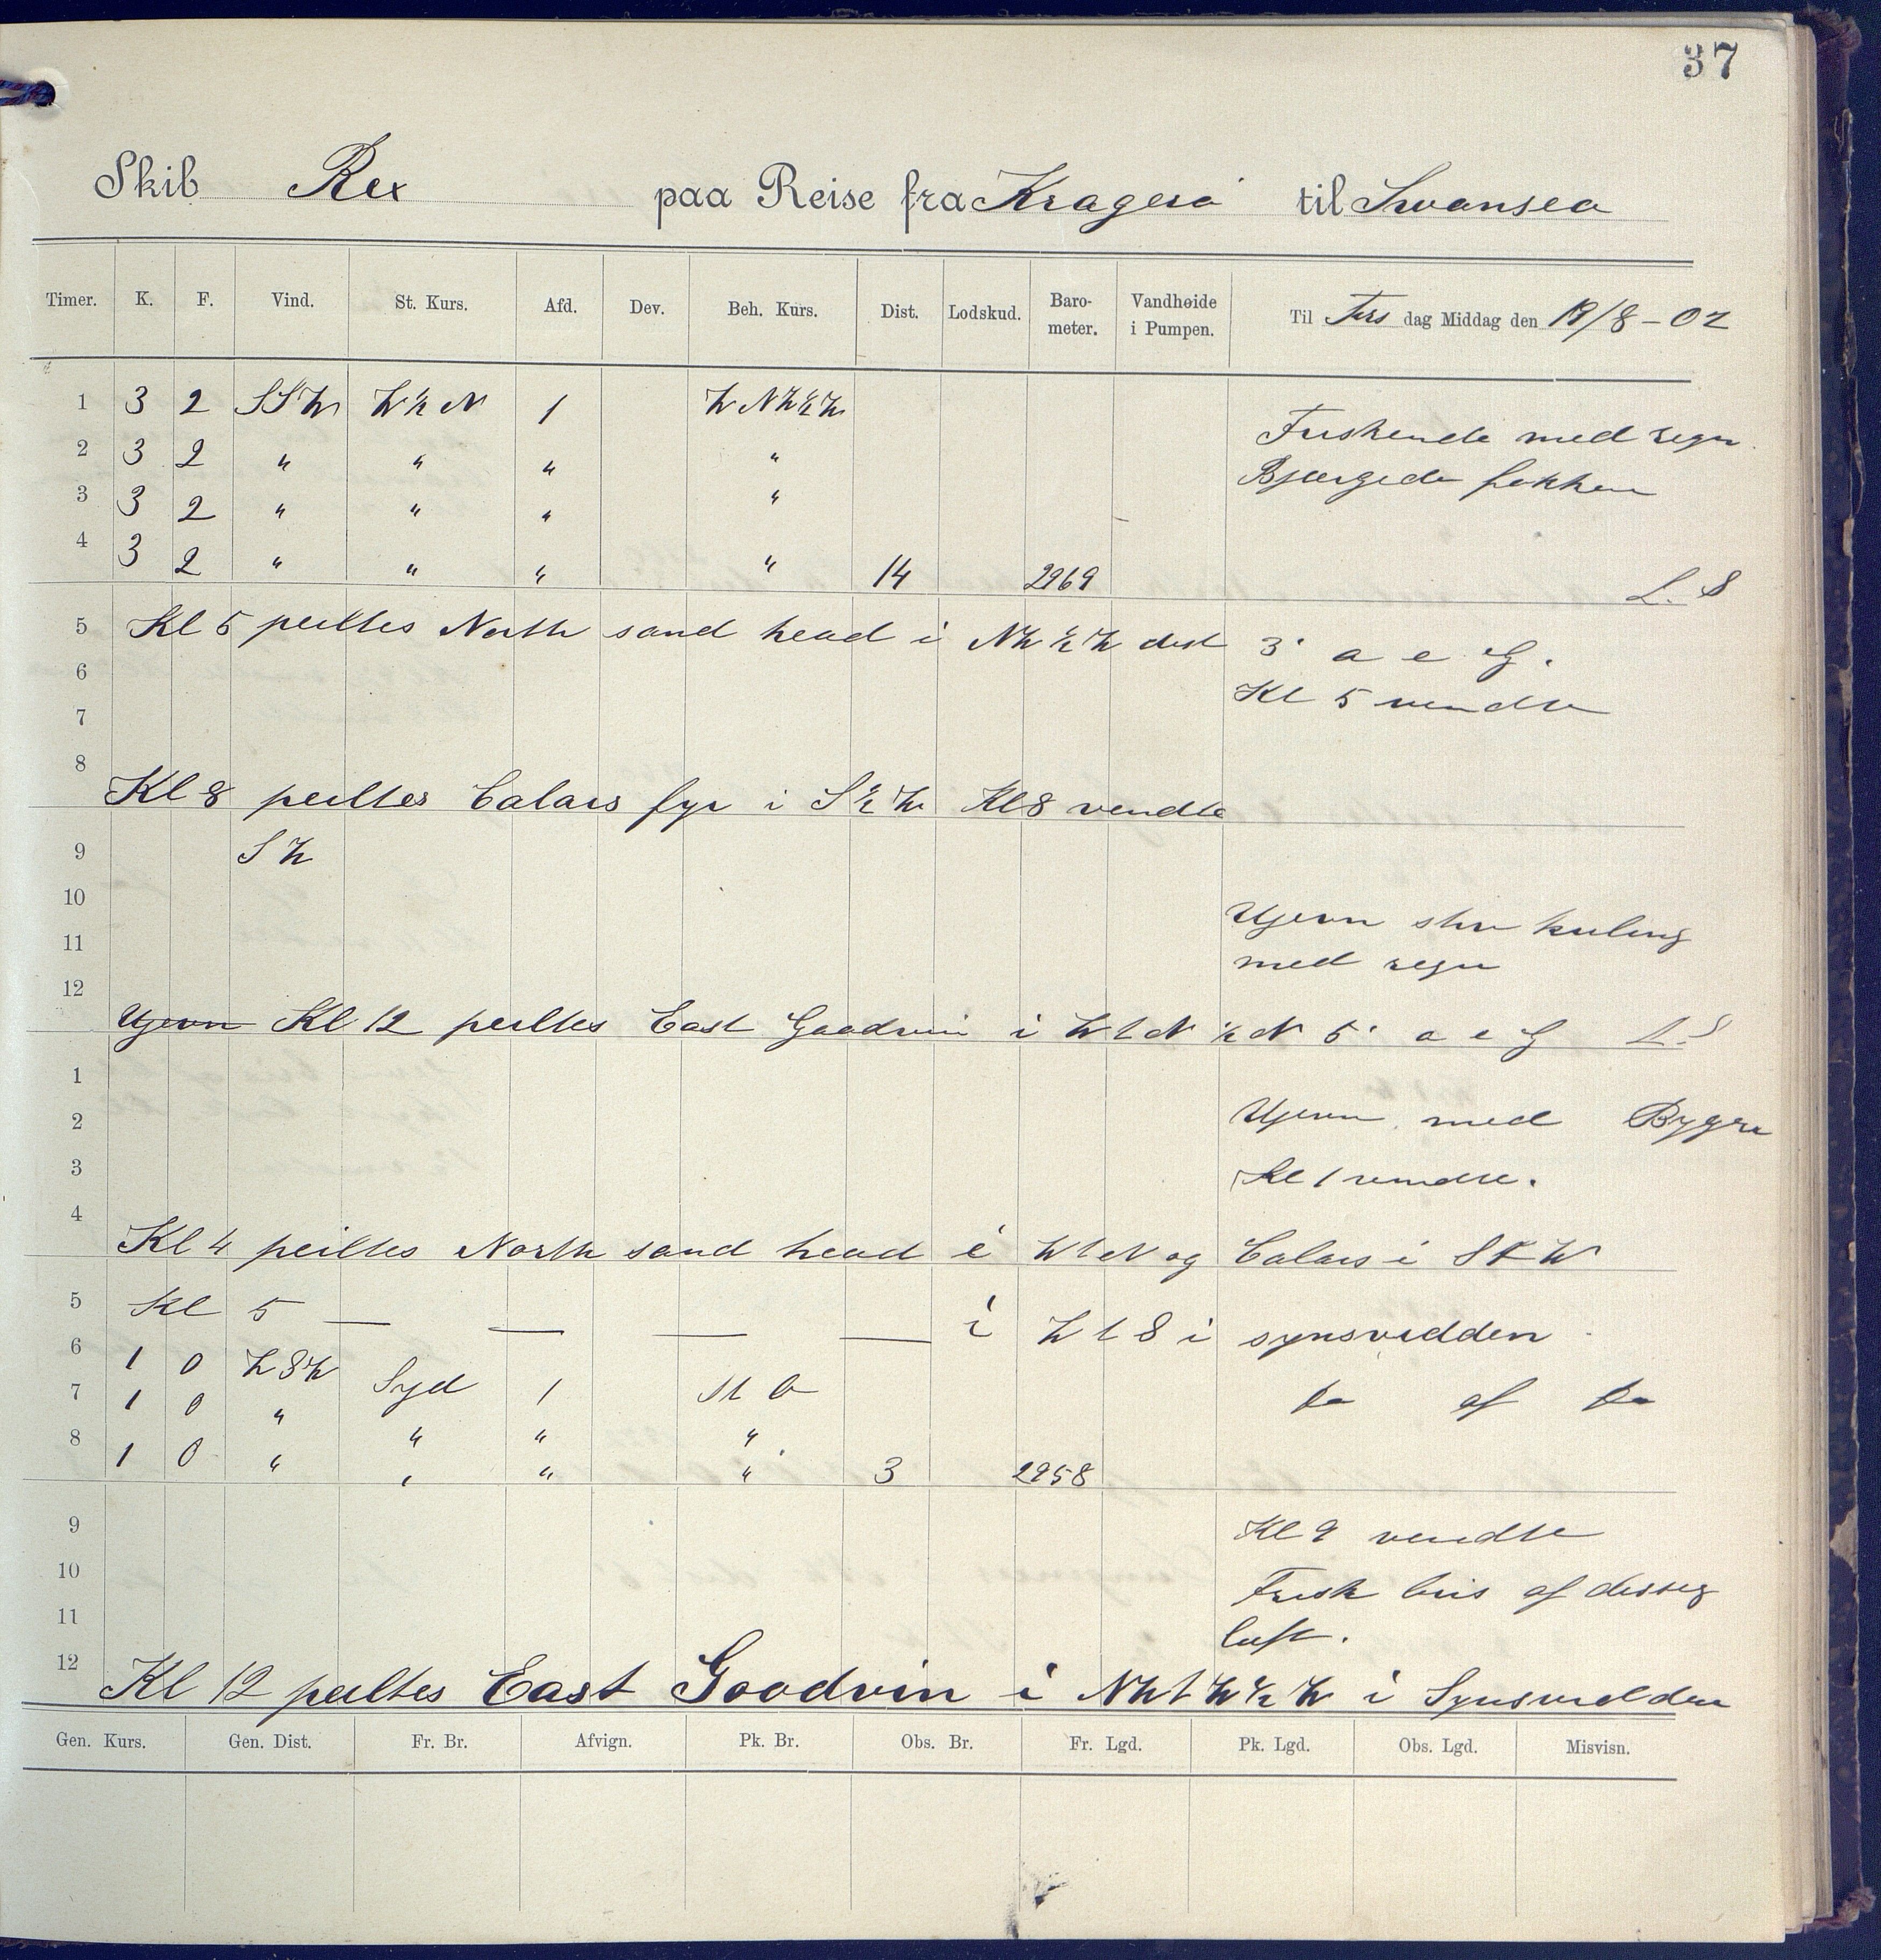 37
Skib Rex paa Reise fra Kragerö til Swansea
Timer. K. F. Vind. St. Kurs. Afd. Dev. Beh. Kurs. Dist. Lodskud. Baro-meter. Vandhøide i Pumpen. Til Tirs dag Middag den 19/8 - 02
1 3 2 SSW W½N 1 WNW½W
Friskende med regn.
2 3 2 " " " "
Bjærgede fokken
3 3 2 " " " "
4 3 2 " " " " 14 2969 L. S
5 Kl 5 peiltes North sand head i NW½W dist 3' a e G.
6 Kl 5 vendte
7
8 Kl 8 peiltes Calais fyr i S½W Kl 8 vendte
9 SW
10 Ujevn stiv kuling
11 med regn
12 Ujevn Kl 12 peiltes East Goodvin i WtN ½ N 5' a e G L. S
1
2 Ujevn med Byger
3 Kl 1 vendte.
4 Kl 4 peiltes North sand head i WtN og Calais i
5 Kl 5 — — — — i WtS i synsvidden
6 1 0 WSW Syd 1 StO
7 1 0 " " " " af
8 1 0 " " " " 3 2958
9 Kl 9 vendte
10 Frisk bris af disseg
11 luft.
12 Kl 12 peiltes East Goodvin i NWtW½W i Synsvidden
Gen. Kurs. Gen. Dist. Fr. Br. Afvign. Pk. Br. Obs. Br. Fr. Lgd. Pk. Lgd. Obs. Lgd. Misvisn.